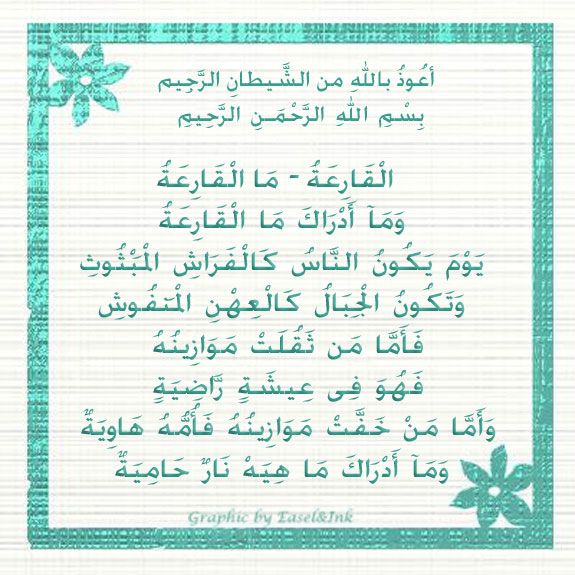 أعُوذُ بِاللهِ مِنَ الشَّيطانِ الرَّجِيم
بِسْمِ اللهِ الرَّحْمَـنِ الرَّحِيمِ
الْقَارِعَةُ - مَا الْقَارِعَةُ
وَمَآ أَدْرَاكَ مَا الْقَارِعَةُ
يَوْمَ يَكُونُ النَّاسُ كَالْفَرَاشِ الْمَبْثُوثِ
وَتَكُونُ الْجِبَالُ كَالْعِهْنِ الْمَنفُوشِ
فَأَمَّا مَن ثَقُلَتْ مَوَازِينُهُ
فَهُوَ فِى عِيشَةٍ رَّاضِيَةٍ
وَأَمَّا مَنْ خَفَّتْ مَوَازِينُهُ فَأُمُّهُ هَاوِيَةٌ
وَمَآ أَدْرَاكَ مَا هِيَهْ نَارٌ حَامِيَةٌ
Graphic by Easel&Ink